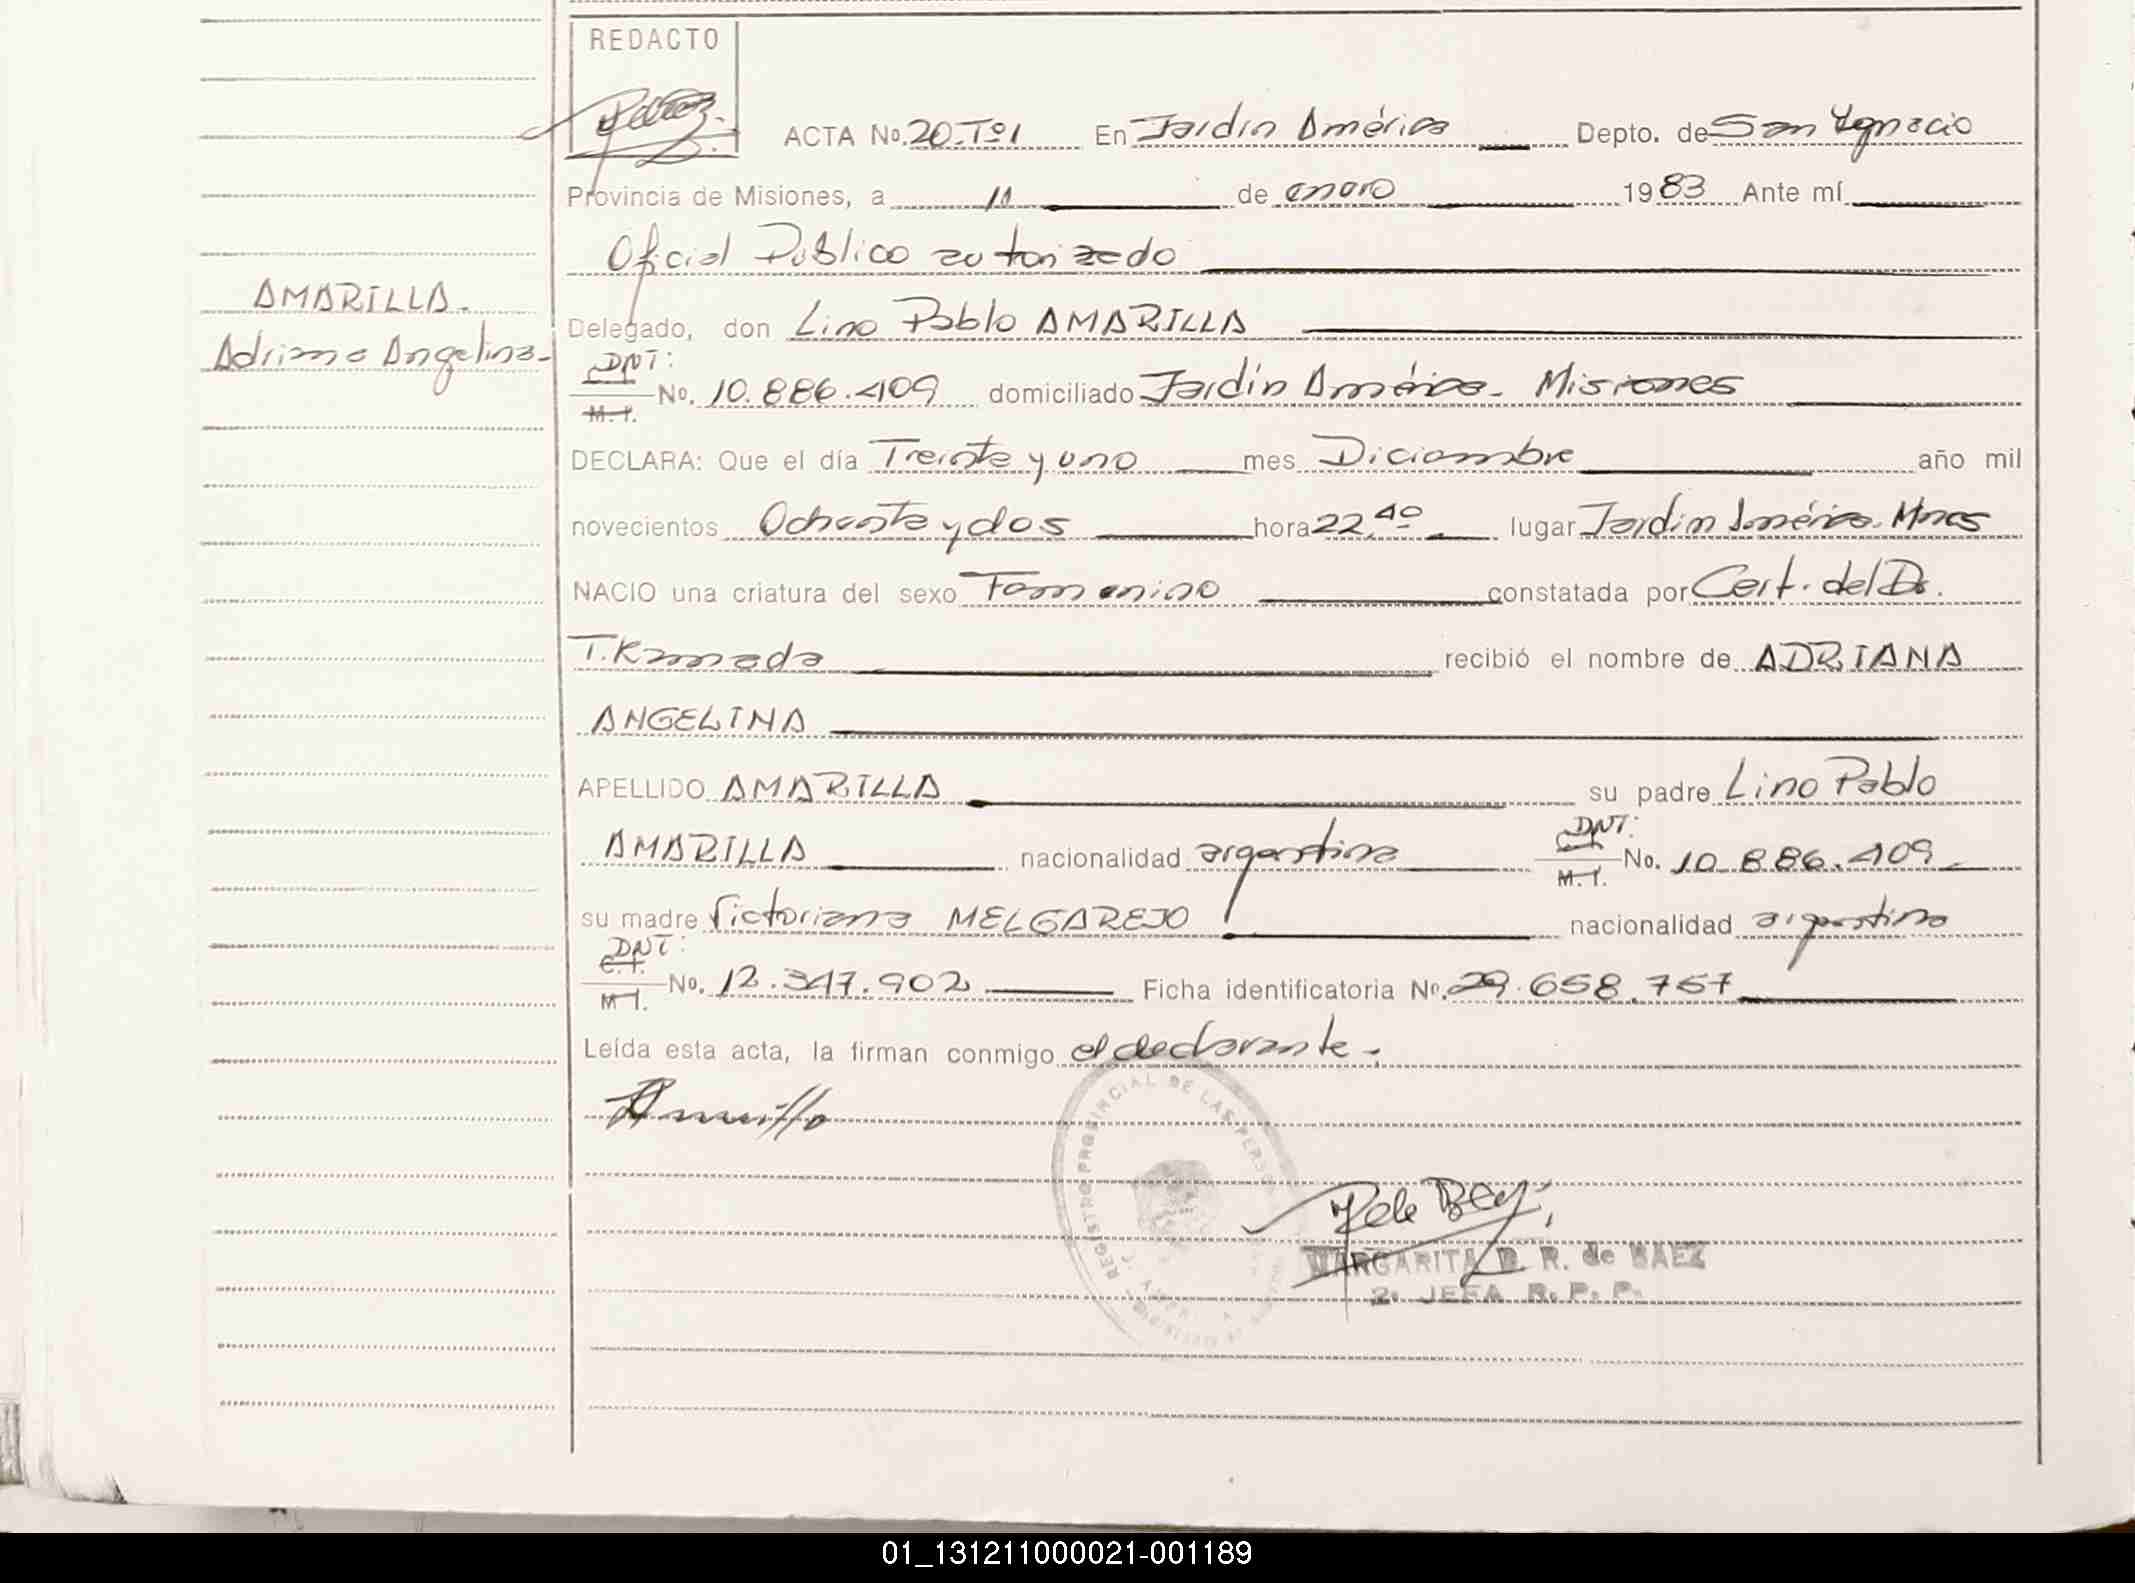 REDACTO
ACTA No. 20. Tº1 En Jardín América Depto. de San Ignacio
Provincia de Misiones, a 11 de enero 1983 Ante mí
Oficial Público autorizado
AMARILLA.
Adriana Angelina.
Delegado, don Lino Pablo AMARILLA
DNI:
C.I.
M.I. No. 10.886.409 domiciliado Jardín América. Misiones
DECLARA: Que el día Treinta y uno mes Diciembre año mil
novecientos Ochenta y dos hora 22,40 lugar Jardín América. Mnes
NACIO una criatura del sexo Femenino constatada por Cert. del Dr.
T. Kamada recibió el nombre de ADRIANA
ANGELINA
APELLIDO AMARILLA su padre Lino Pablo
DNI:
AMARILLA nacionalidad argentina C.I. M.I. No. 10.886.409
su madre Victoriana MELGAREJO nacionalidad argentina
DNI:
C.I.
M.I. No. 12.347.902 Ficha identificatoria Nº. 29.658.757
Leída esta acta, la firman conmigo el declarante.
REGISTRO PROVINCIAL DE LAS PERSONAS
MARGARITA R. de BAEZ
2. JEFA R. P. P.
01_131211000021-001189